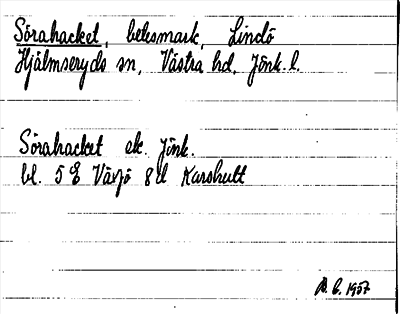 Sörahacket, betesmark, Lindö
Hjälmseryds sn, Västra hd, Jönk. l.
Sörahacket ek. Jönk.
bl. 5 E Växjö 8 d Karshult
B. C. 1957